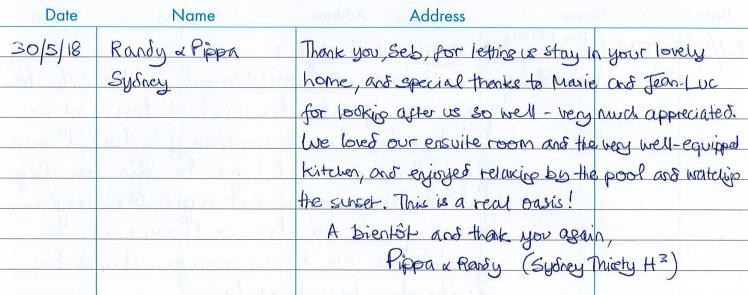 Date Name Address
30/5/18 Randy & Pippa Thank you, Seb, for letting us stay in your lovely
Sydney home, and special thanks to Marie and Jean-Luc
for looking after us so well - very much appreciated.
We loved our ensuite room and the very well-equipped
kitchen, and enjoyed relaxing by the pool and watching
the sunset. This is a real oasis!
A bientôt and thank you again,
Pippa & Randy (Sydney Thirsty H³)